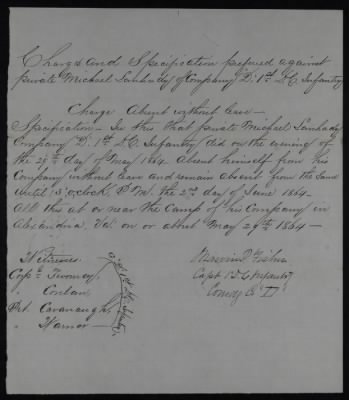 Charge and Specification prefered against
private Michael Lanhady of Company "D" 1st D.C. Infantry
Charge Absent without leave—
Specification — In this that private Michael Lanhady
Company "D" 1st D.C. Infantry did on the evening of
the 29th day of May 1864. absent himself from his
Company without leave and remain absent from the same
until 3 o,clock P.M. the 2nd day of June 1864.
All this at or near the Camp of his Company in
Alexandria Va. on or about May 29th 1864—
Witnesses
Corpl. Twomey
" Conlan
Pvt. Cavanaugh
" Warnor
Capt 1st D.C. Infantry
Comdg Co "D"